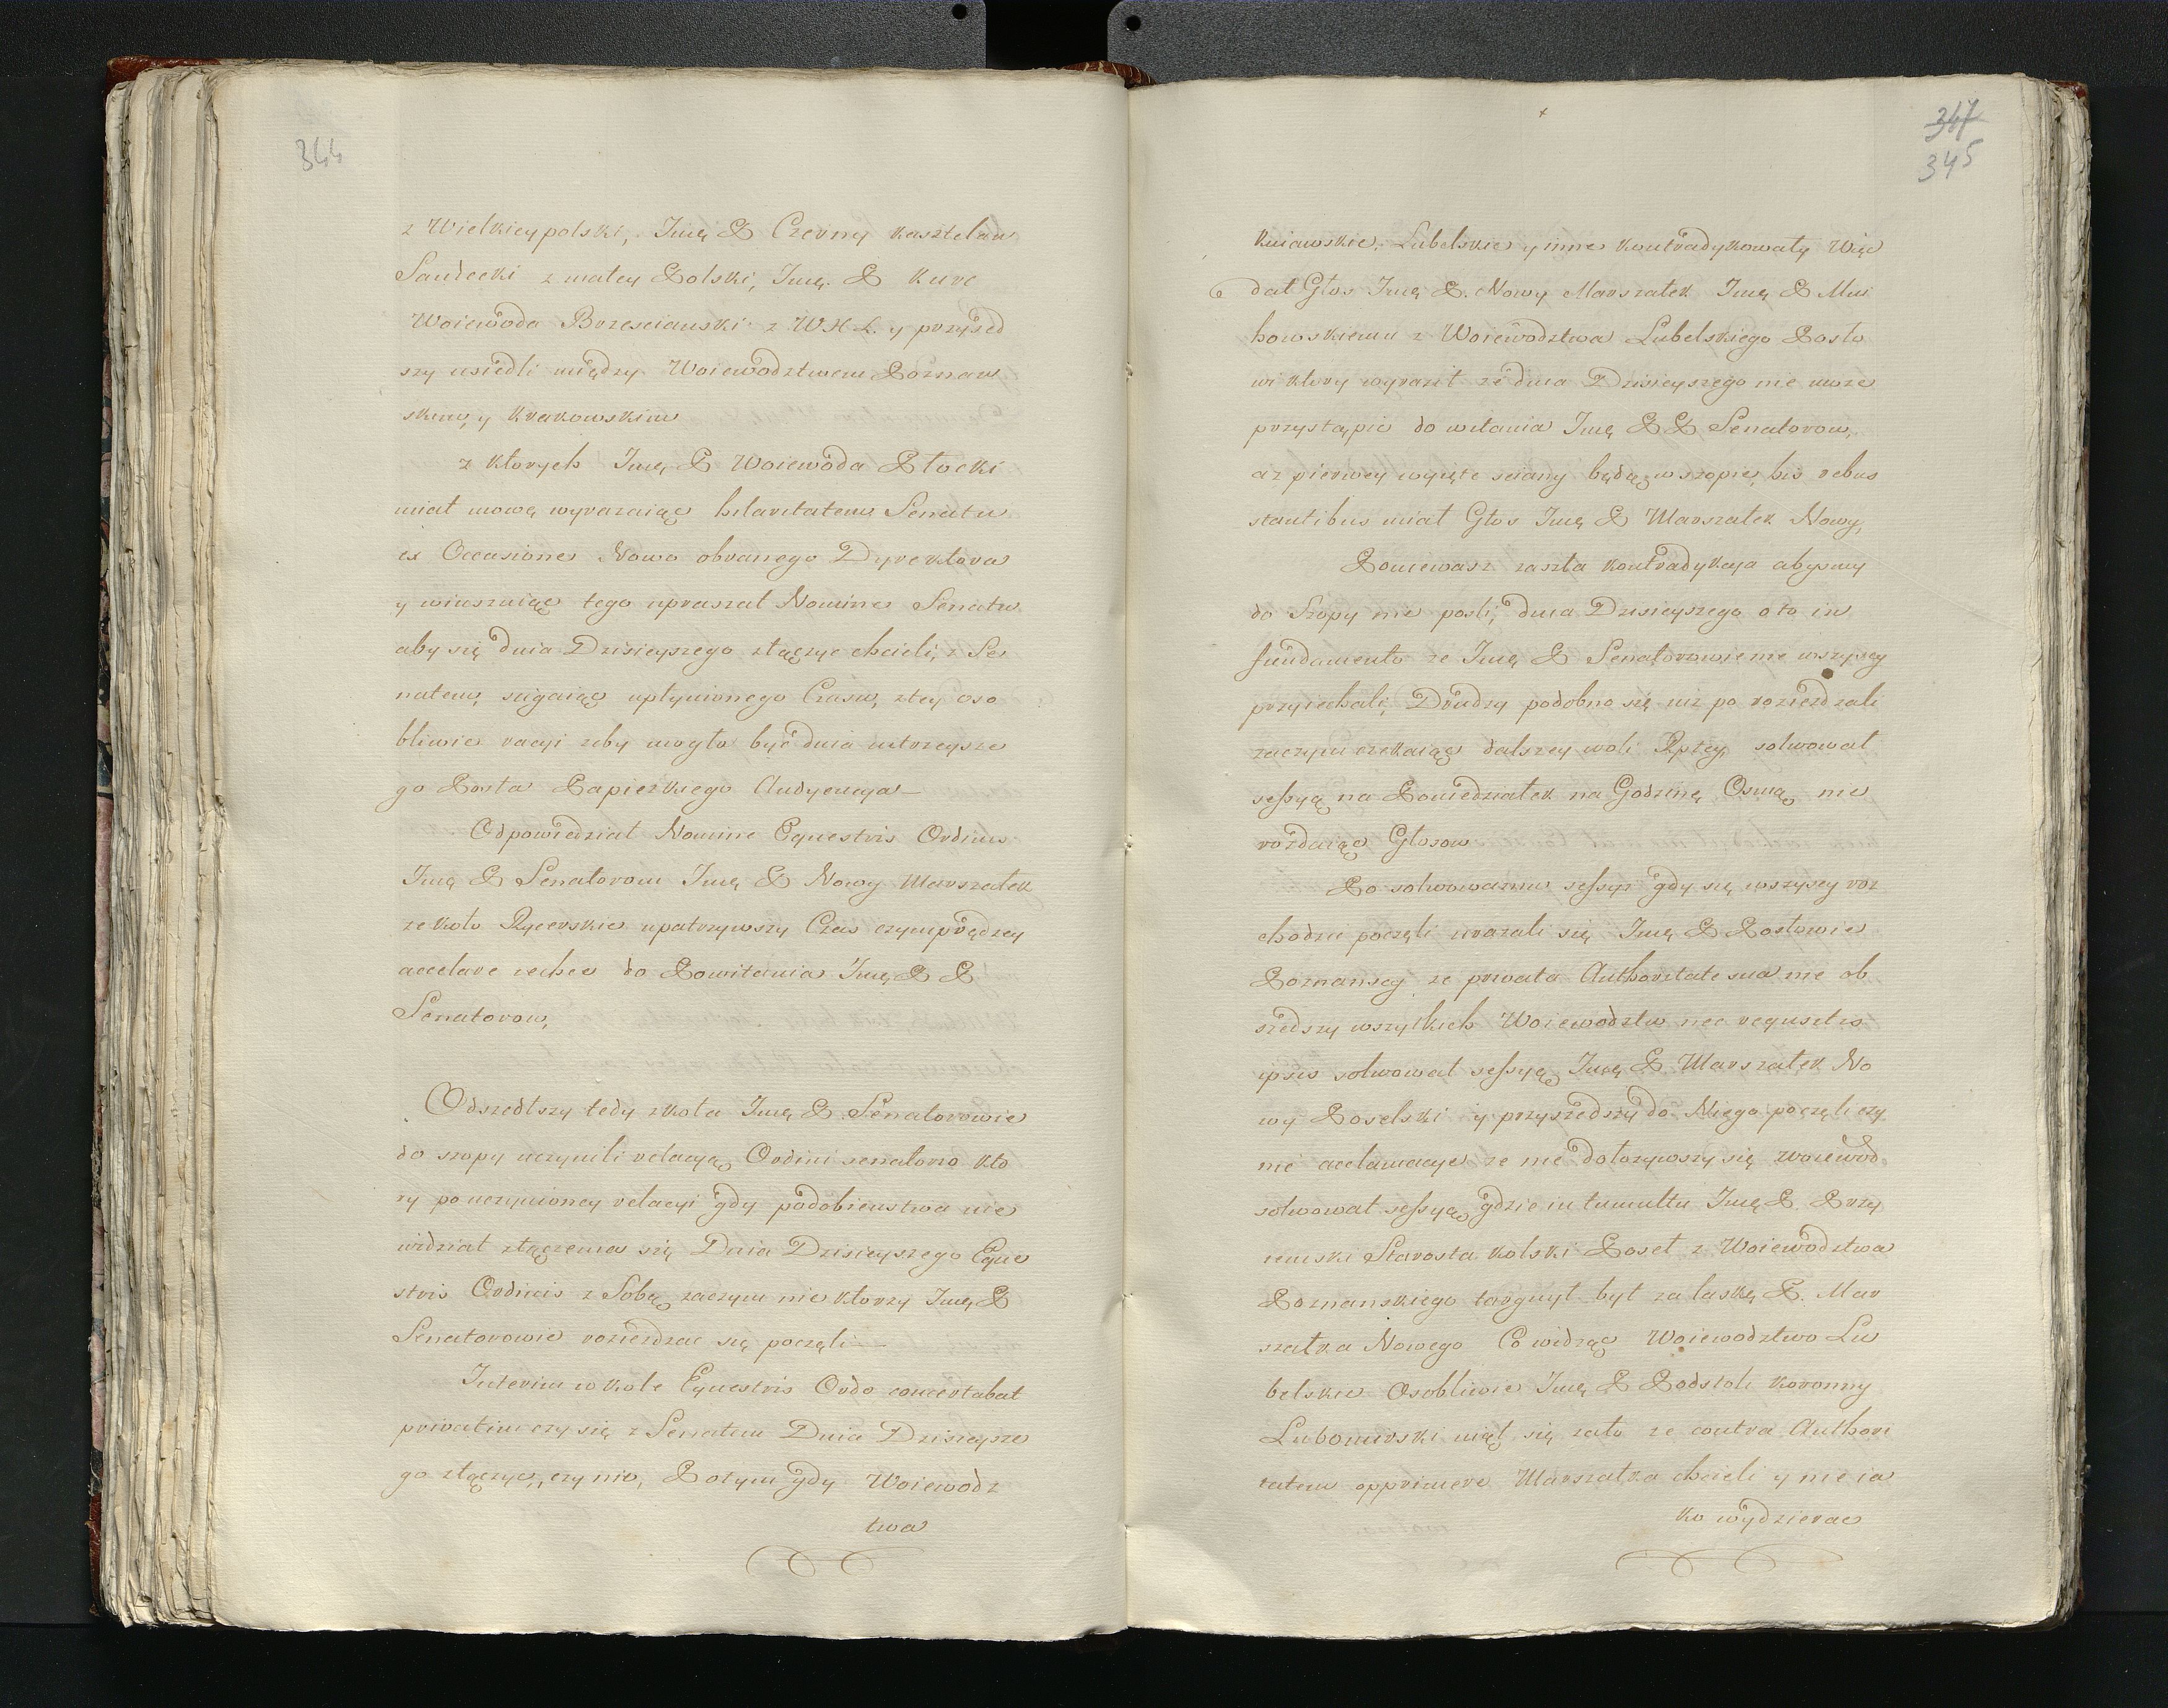 344
z Wielkieypolski, Jmę P Czerny kasztelan
Sandecki z małey Polski, Jmę. P kure
Woiewoda Brzescianski z WXL. y przyszed
szy usiedli między Woiewodztwem Poznan
skim, y Krakowskim
z ktorych Jmę P Woiewoda Płocki
miał mowę wyrazaiąc hilaritatem Senatu
ex Occasione Nowo obranego Dyrektora
y winszuiąc tego upraszał Nomine Senatu
aby się dnia Dzisieyszego złączyc chcieli, z Se
natem, scigaiąc upłynionego Czasu, z tey oso
bliwie racyi zeby mogła być dnia iutrzeysze
go Posła Papiezkiego Audyencya
Odpowiedział Nomine Equestris Ordinis
Jmę P Senatorom Jmę P Nowy Marszałek
ze koło Rycerskie upatrzywszy Czas czymprędzey
accelare zechce do Powitania Jmę P P
Senatorow,
Odszedłszy tedy z koła Jmę P. Senatorowie
do szopy uczynili relacyą Ordini senatorio kto
ry po uczynioney relacyi gdy podobienstwa nie
widział złączenia się Dnia Dzisieyszego Eque
stris Ordinis z Sobą zaczym niektorzy Jmę P
Senatorowie rozieżdzac się poczęli
Interim w kole Equestris Ordo concertabat
privatim czy się z Senatem Dnia Dzisieysze
go złączyc, czy nie, Potym gdy Woiewodz
twa
347
345
kuiawskie, Lubelskie y inne kontradykowały Więc
dał Głos Jmę P. Nowy Marszałek Jmę P Miu
howskiemu z Woiewodztwa Lubelskiego Posło
wi ktory wyraził ze dnia Dzisieyszego nie moze
przystąpic do witania Jmę P P Senatorow,
az pierwey wyięte sciany będą w szopie, his rebus
stantibus miał Głos Jmę P Marszałek Nowy,
Poniewasz zaszła kontradykcya abysmy
do Szopy nie poszli, dnia Dzisieyszego o to in
fundamento ze Jmę P Senatorowie nie wszyscy
przyiechali, Drudzy podobno się iuz po rozieżdzali
zaczym czekaiąc dalszey woli Rptey, solwował
sessyą na Poniedziałek na Godzinę Osmą, nie
rozdaiąc Głosow
Po solwowaniu sessyi gdy się wszyscy roz
chodzic poczęli urazali się Jmę P Posłowie
Poznanscy ze privata Authoritate sua nie ob
szedszy wszytkich Woiewodztw nec requisitis
ipsis solwował sessyą Jmę P. Marszałek No
wy Poselski y przyszedszy do Niego poczęli czy
nic acclamacye ze nie dołozywszy się woiewod.
solwował sessyą, gdzie in tumultu Jmę P. Przy
iemski Starosta kolski Poseł z Woiewodztwa
Poznanskiego targnył był za laskę P. Mar
szałka Nowego Co widząc Woiewodztwo Lu
belskie Osobliwie Jmę P Podstoli koronny
Lubomirski uiął się zato ze contra Authori
tatem opprimere Marszałka chcieli y nie ia
ko wydzierac